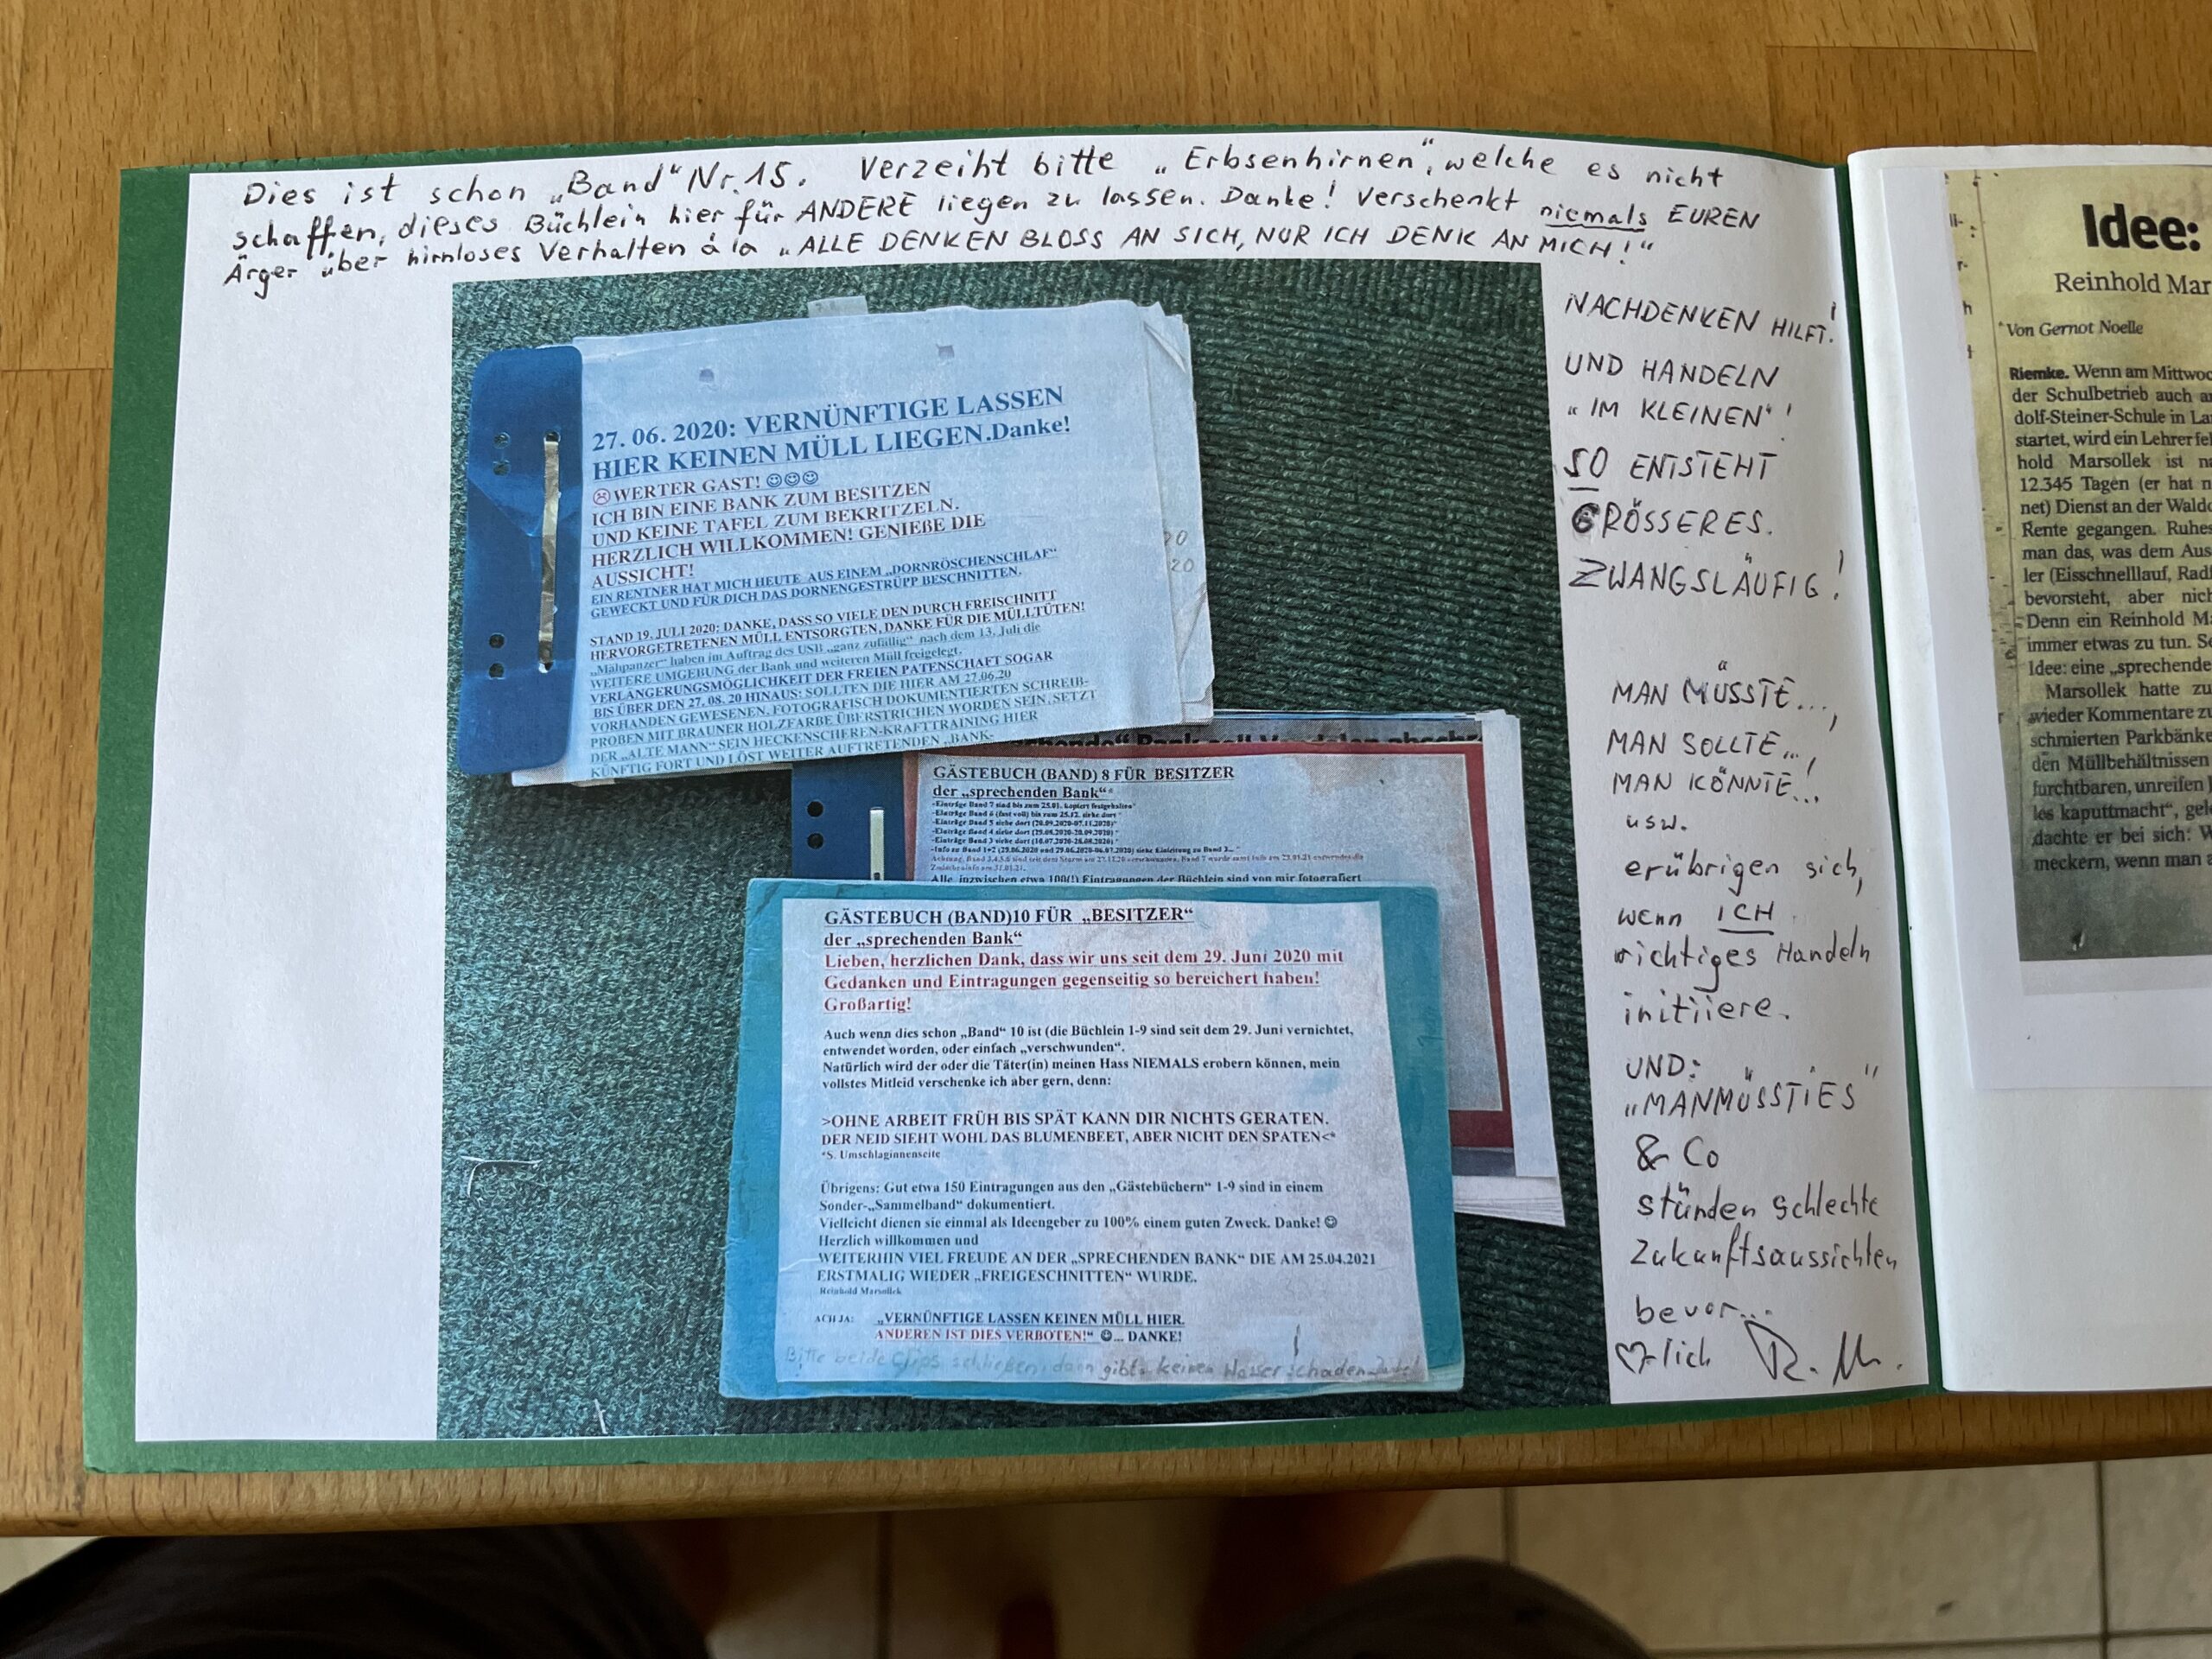 Dies ist schon „Band“ Nr. 15. Verzeiht bitte „Erbsenhirnen“, welche es nicht
schaffen, dieses Büchlein hier für ANDERE liegen zu lassen. Danke! Verschenkt niemals EUREN
Ärger über hirnloses Verhalten á la „ALLE DENKEN BLOSS AN SICH, NUR ICH DENK AN MICH!“
27. 06. 2020: VERNÜNFTIGE LASSEN
HIER KEINEN MÜLL LIEGEN.Danke!
☹WERTER GAST! ☺☺☺
ICH BIN EINE BANK ZUM BESITZEN
UND KEINE TAFEL ZUM BEKRITZELN.
HERZLICH WILLKOMMEN! GENIEßE DIE
AUSSICHT!
EIN RENTNER HAT MICH HEUTE AUS EINEM „DORNRÖSCHENSCHLAF“
GEWECKT UND FÜR DICH DAS DORNENGESTRÜPP BESCHNITTEN.
STAND 19. JULI 2020: DANKE, DASS SO VIELE DEN DURCH FREISCHNITT
HERVORGETRETENEN MÜLL ENTSORGTEN, DANKE FÜR DIE MÜLLTÜTEN!
„Mähpanzer“ haben im Auftrag des USB „ganz zufällig“ nach dem 13. Juli die
WEITERE UMGEBUNG der Bank und weiteren Müll freigelegt.
VERLÄNGERUNGSMÖGLICHKEIT DER FREIEN PATENSCHAFT SOGAR
BIS ÜBER DEN 27. 08. 20 HINAUS: SOLLTEN DIE HIER AM 27.06.20
VORHANDEN GEWESENEN, FOTOGRAFISCH DOKUMENTIERTEN SCHREIB-
PROBEN MIT BRAUNER HOLZFARBE ÜBERSTRICHEN WORDEN SEIN, SETZT
DER „ALTE MANN“ SEIN HECKENSCHEREN-KRAFTTRAINING HIER
KÜNFTIG FORT UND LÖST WEITER AUFTRETENDEN „BANK-
20
20
GÄSTEBUCH (BAND) 8 FÜR BESITZER
der „sprechenden Bank“*
-Einträge Band 7 sind bis zum 25.01. kopiert festgehalten*
-Einträge Band 6 (fast voll) bis zum 25.12. siehe dort *
-Einträge Band 5 siehe dort (20.09.2020-07.11.2020) *
-Einträge Band 4 siehe dort (29.08.2020-20.09.2020) *
-Einträge Band 3 siehe dort (10.07.2020-28.08.2020) *
Alle, inzwischen etwa 100(!) Eintragungen der Büchlein sind von mir fotografiert
GÄSTEBUCH (BAND)10 FÜR „BESITZER“
der „sprechenden Bank“
Lieben, herzlichen Dank, dass wir uns seit dem 29. Juni 2020 mit
Gedanken und Eintragungen gegenseitig so bereichert haben!
Großartig!
Auch wenn dies schon „Band“ 10 ist (die Büchlein 1-9 sind seit dem 29. Juni vernichtet,
entwendet worden, oder einfach „verschwunden“.
Natürlich wird der oder die Täter(in) meinen Hass NIEMALS erobern können, mein
vollstes Mitleid verschenke ich aber gern, denn:
>OHNE ARBEIT FRÜH BIS SPÄT KANN DIR NICHTS GERATEN.
DER NEID SIEHT WOHL DAS BLUMENBEET, ABER NICHT DEN SPATEN<*
*S. Umschlaginnenseite
Übrigens: Gut etwa 150 Eintragungen aus den „Gästebüchern“ 1-9 sind in einem
Sonder-„Sammelband“ dokumentiert.
Vielleicht dienen sie einmal als Ideengeber zu 100% einem guten Zweck. Danke! ☺
Herzlich willkommen und
WEITERHIN VIEL FREUDE AN DER „SPRECHENDEN BANK“ DIE AM 25.04.2021
ERSTMALIG WIEDER „FREIGESCHNITTEN“ WURDE.
Reinhold Marsollek
ACH JA: „VERNÜNFTIGE LASSEN KEINEN MÜLL HIER.
ANDEREN IST DIES VERBOTEN!“ ☺... DANKE!
Bitte beide Clips schließen, dann gibt's keinen Wasserschaden. Danke!
NACHDENKEN HILFT!
UND HANDELN
„IM KLEINEN“!
SO ENTSTEHT
GRÖSSERES.
ZWANGSLÄUFIG!
MAN MÜSSTE...,
MAN SOLLTE...,
MAN KÖNNTE...!
usw.
erübrigen sich,
wenn ICH
richtiges Handeln
initiiere.
UND:
„MANMÜSSTIES“
& Co
stünden schlechte
Zukunftsaussichten
bevor...
♡lich R. M.
Idee:
Reinhold Mar
Von Gernot Noelle
Riemke. Wenn am Mittwoc
der Schulbetrieb auch a
dolf-Steiner-Schule in La
startet, wird ein Lehrer fel
hold Marsollek ist na
12.345 Tagen (er hat n
net) Dienst an der Waldo
Rente gegangen. Ruhes
man das, was dem Aus
ler (Eisschnelllauf, Radf
bevorsteht, aber nich
Denn ein Reinhold Ma
immer etwas zu tun. Se
Idee: eine „sprechende
Marsollek hatte zu
wieder Kommentare zu
schmierten Parkbänke
den Müllbehältnissen
furchtbaren, unreifen J
les kaputtmacht“, gele
dachte er bei sich: W
meckern, wenn man a